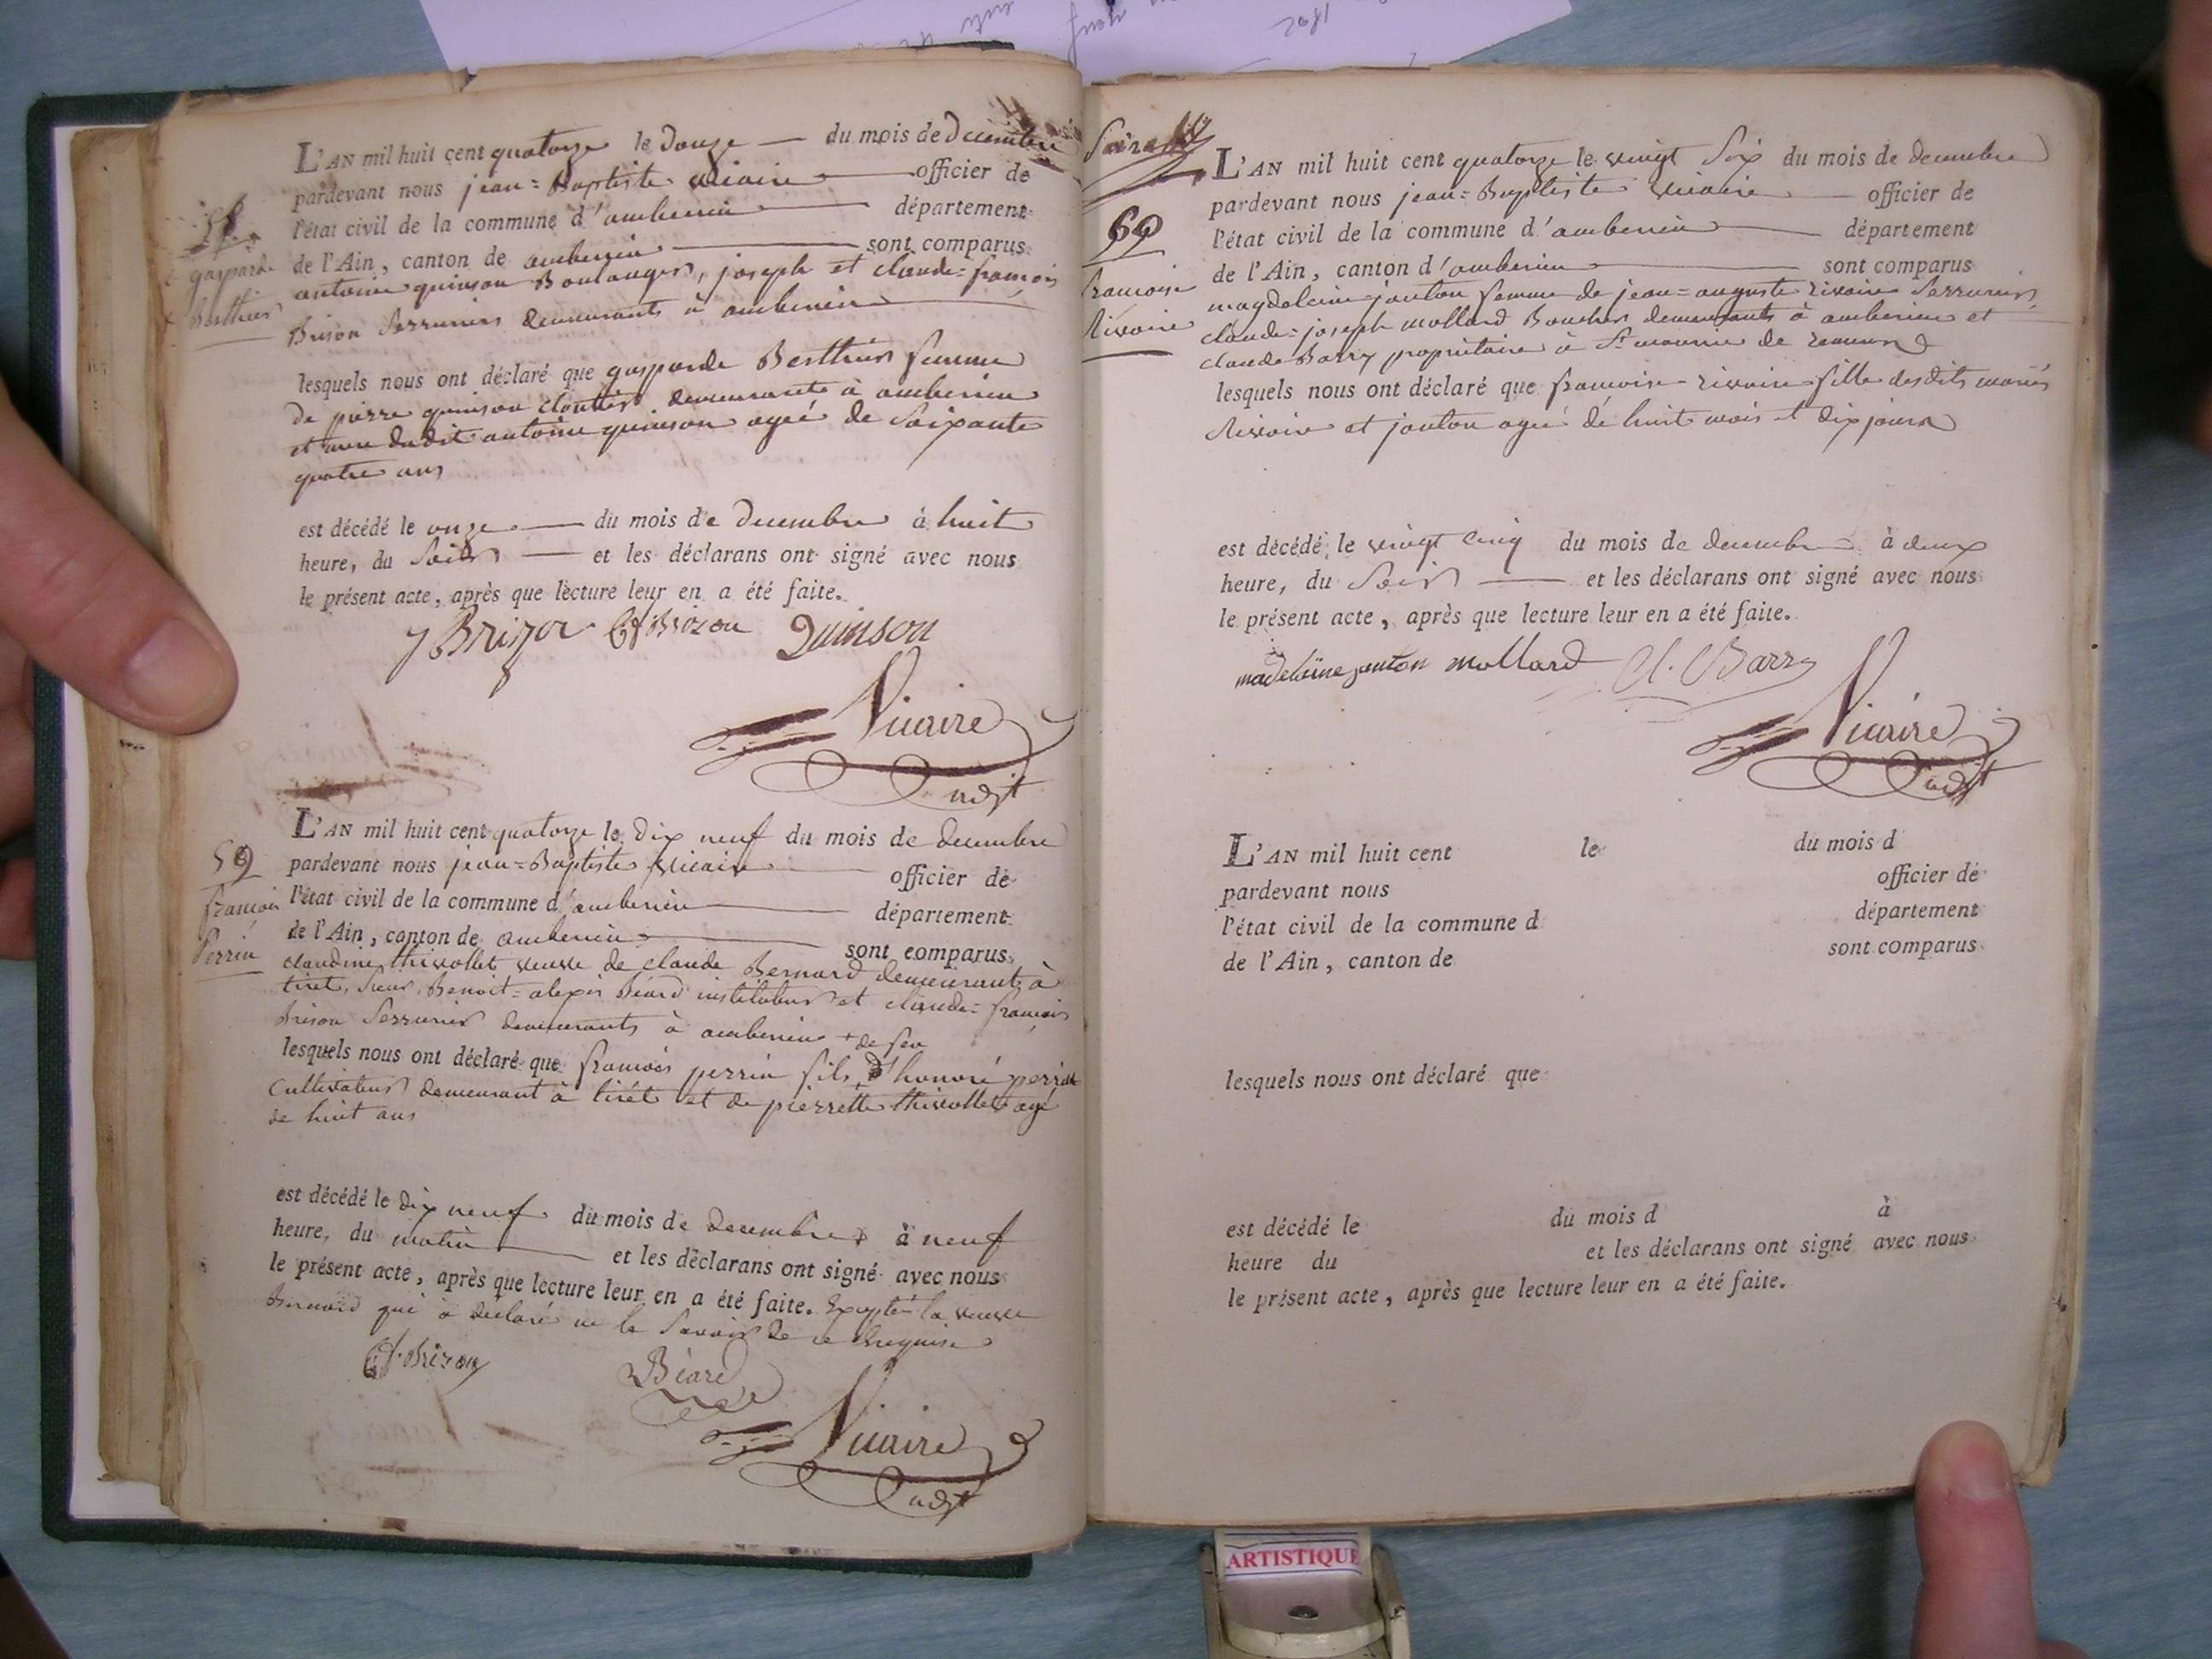 L'AN mil huit cent quatorze le Douze du mois de Decembre
pardevant nous jean=Baptiste vicaire officier de
l'état civil de la commune d'amberieu département
de l'Ain, canton de amberieu sont comparus
antoine quinson Boulanger, joseph et claude=françois
Brison Serruriers demeurants à amberieu
gasparde
Berthier
lesquels nous ont déclaré que gasparde Berthier femme
De pierre quinson cloutier demeurante à amberieu
et mere dudit antoine quinson agée de Soixante
quatre ans
est décédé le onze du mois de Decembre à huit
heure, du Soir et les déclarans ont signé avec nous
le présent acte, après que lecture leur en a été faite.
J Brizon Cf Brison Quinson
Vicaire
adjt
L'AN mil huit cent quatorze le Dix neuf du mois de decembre
59
pardevant nous jean=Baptiste vicaire officier de
françois
l'état civil de la commune d'amberieu département
Perrin
de l'Ain, canton de amberieu sont comparus
claudine thivollet veuve de claude Bernard demeurant à
tiret, Sieur Benoit=alexis Béard instituteur et claude=françois
Brison Serrurier demeurants à amberieu + de feu
lesquels nous ont déclaré que françois perrin fils d'honoré perrin
Cultivateur demeurant à tirét et de pierrette thivollet agé
de huit ans
est décédé le Dix neuf du mois de decembre à neuf
heure, du matin et les déclarans ont signé avec nous
le présent acte, après que lecture leur en a été faite. Excepté la veuve
Bernard qui a déclaré ne le Savoir de ce Enquise
Cf. Brizon Béard
Vicaire
adjt
L'AN mil huit cent quatorze le vingt Six du mois de decembre
pardevant nous jean=Baptiste vicaire officier de
60
l'état civil de la commune d'amberieu département
de l'Ain, canton d'amberieu sont comparus
francoise
Rivoire
magdeleine janton femme de jean=auguste rivoire Serrurier,
claude=joseph mollard Boucher demeurants à amberieu et
claude Barry propriétaire à St maurice de remens
lesquels nous ont déclaré que francoise rivoire fille desdits mariés
Rivoire et janton agée de huit mois et dix jours
est décédé, le vingt cinq du mois de decembre à deux
heure, du Soir et les déclarans ont signé avec nous
le présent acte, après que lecture leur en a été faite.
madeleine janton mollard Cl. Barry
Vicaire
adjt
L'AN mil huit cent le du mois d
pardevant nous officier de
l'état civil de la commune d département
de l'Ain, canton de sont comparus
lesquels nous ont déclaré que
est décédé le du mois d à
heure du et les déclarans ont signé avec nous
le présent acte, après que lecture leur en a été faite.
ARTISTIQUE